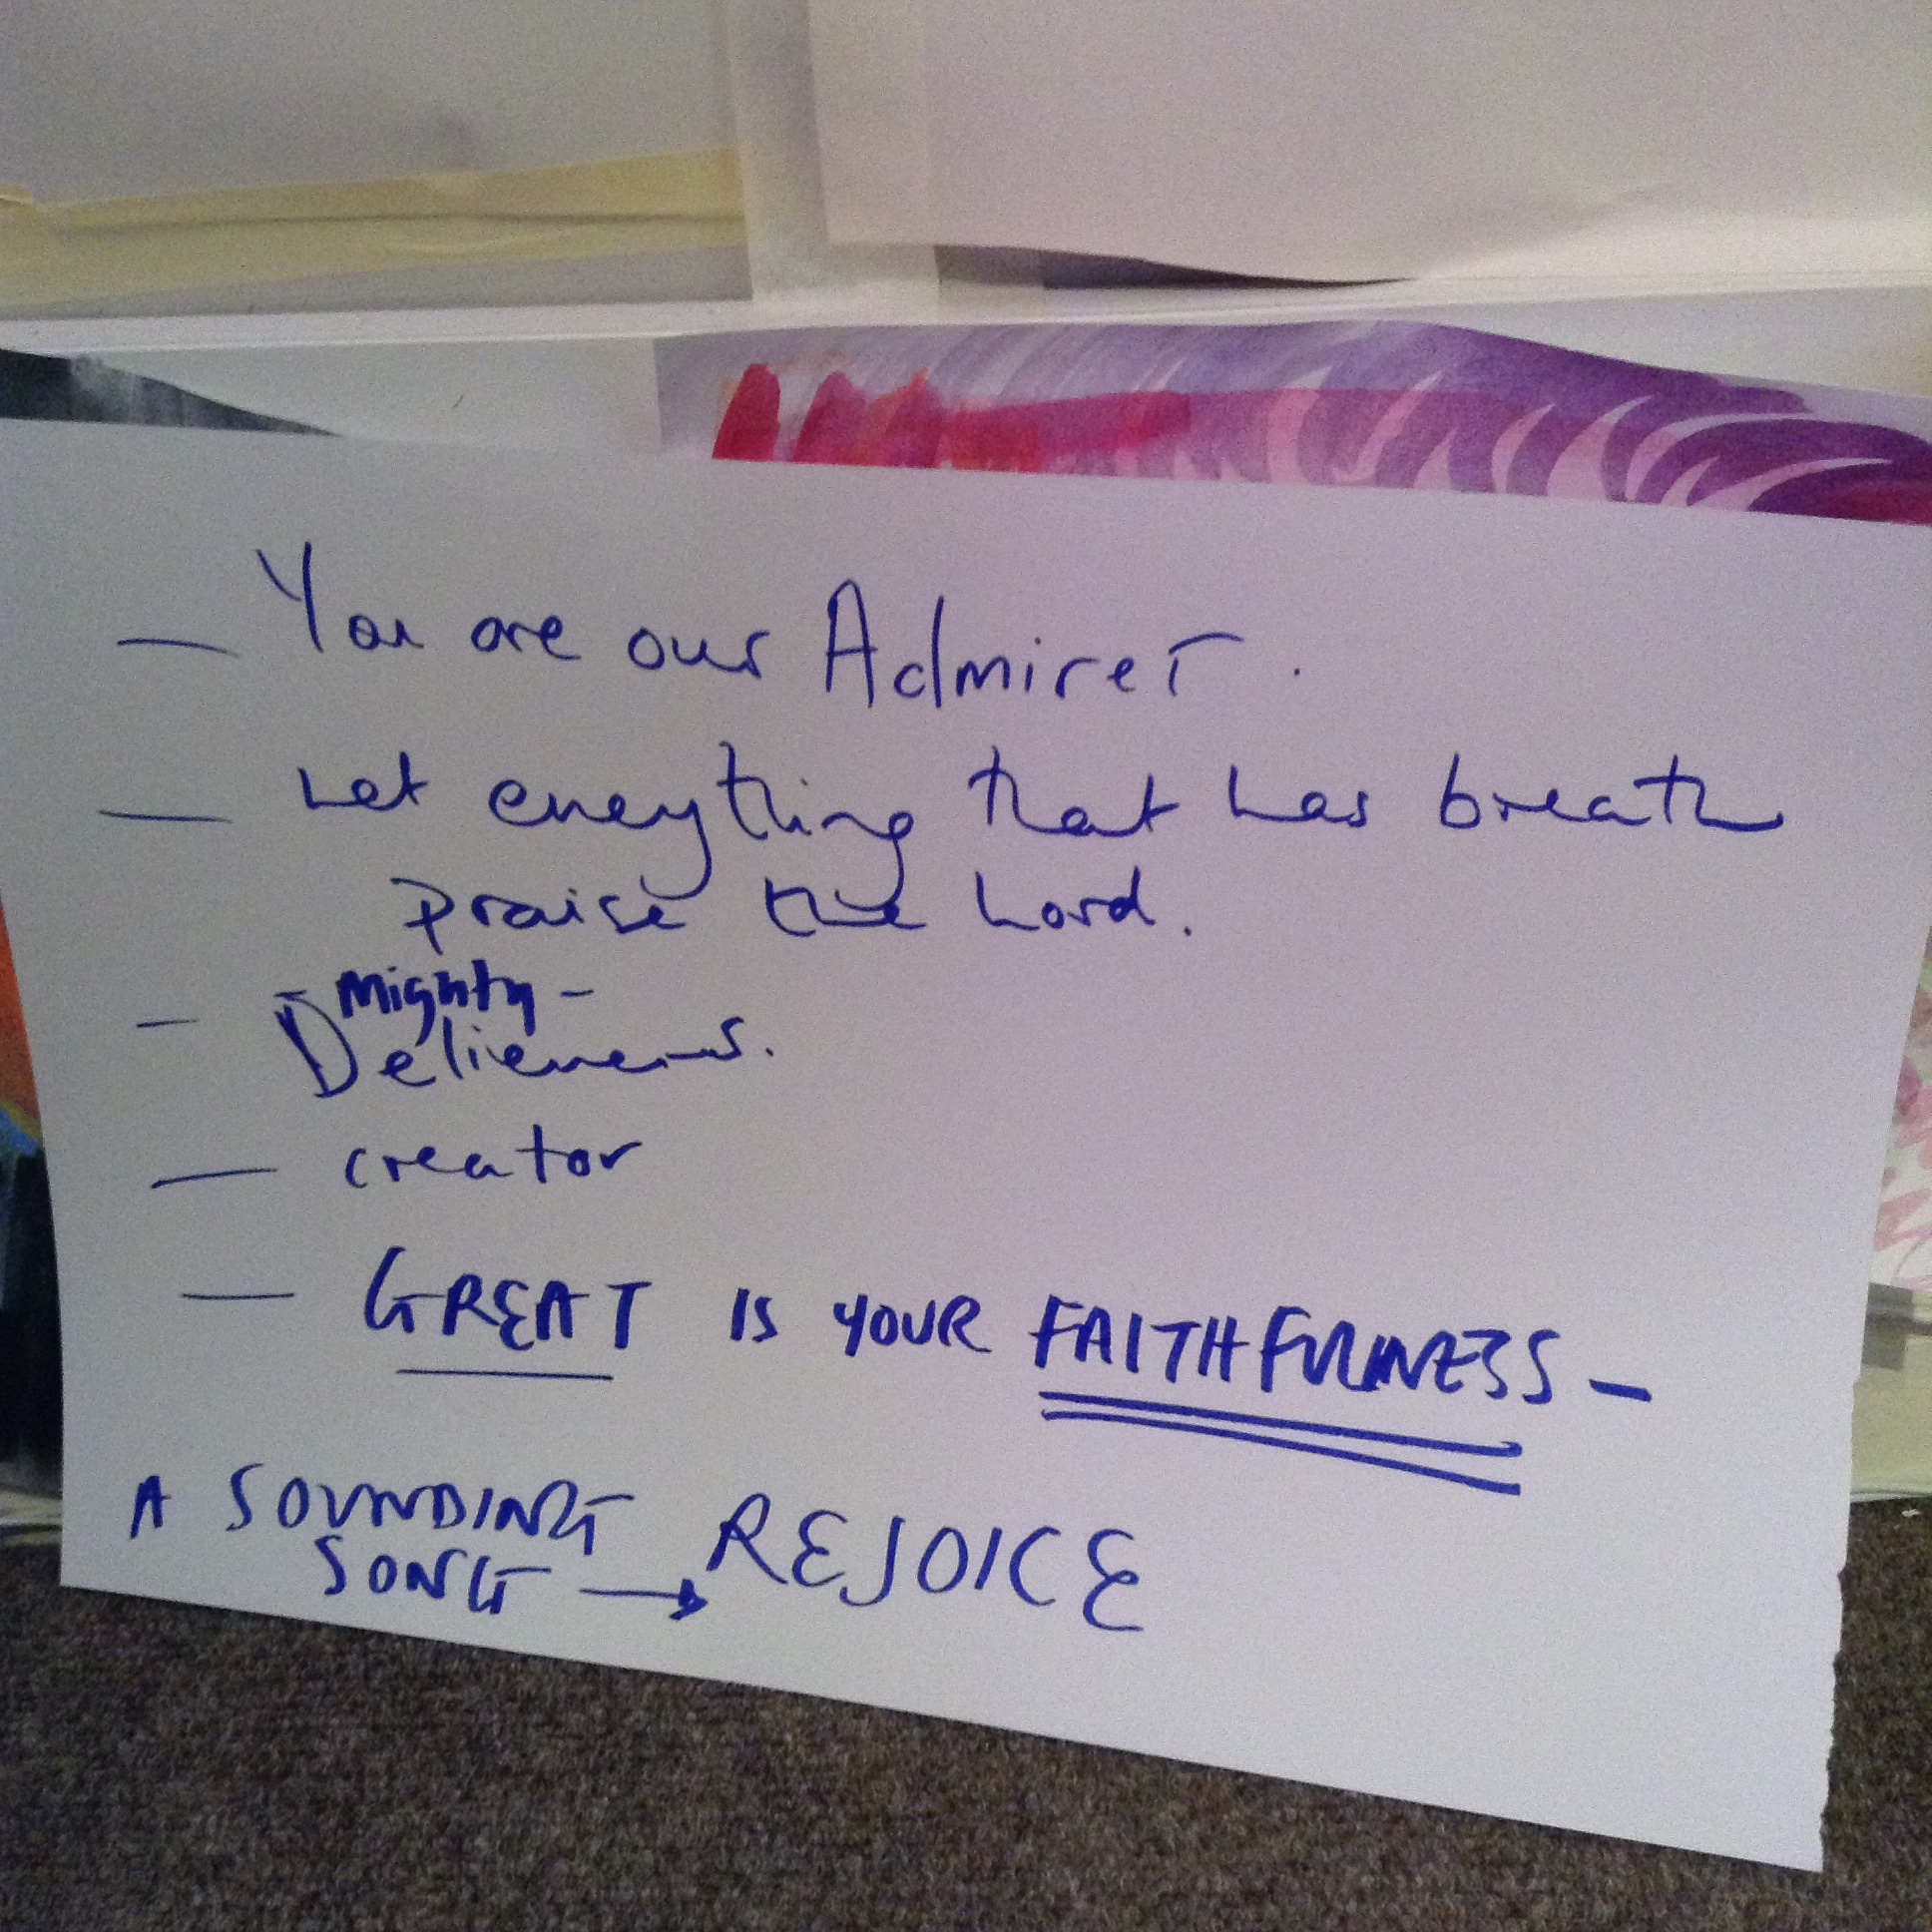 — You are our Admirer.
— Let everything that has breath
praise the Lord.
- Mighty -
— Deliverer.
— creator
— GREAT IS YOUR FAITHFULNESS —
A SOUNDING
SONG → REJOICE